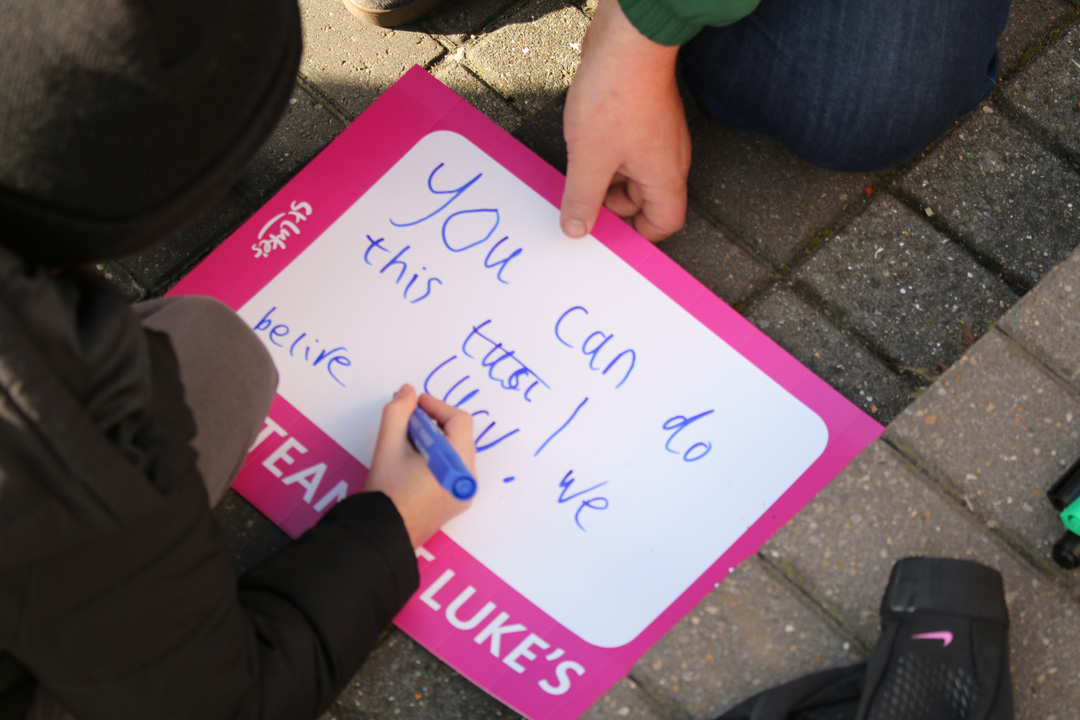 St Luke's
You can do
this Lucy! we
belive
TEAM
T LUKE'S